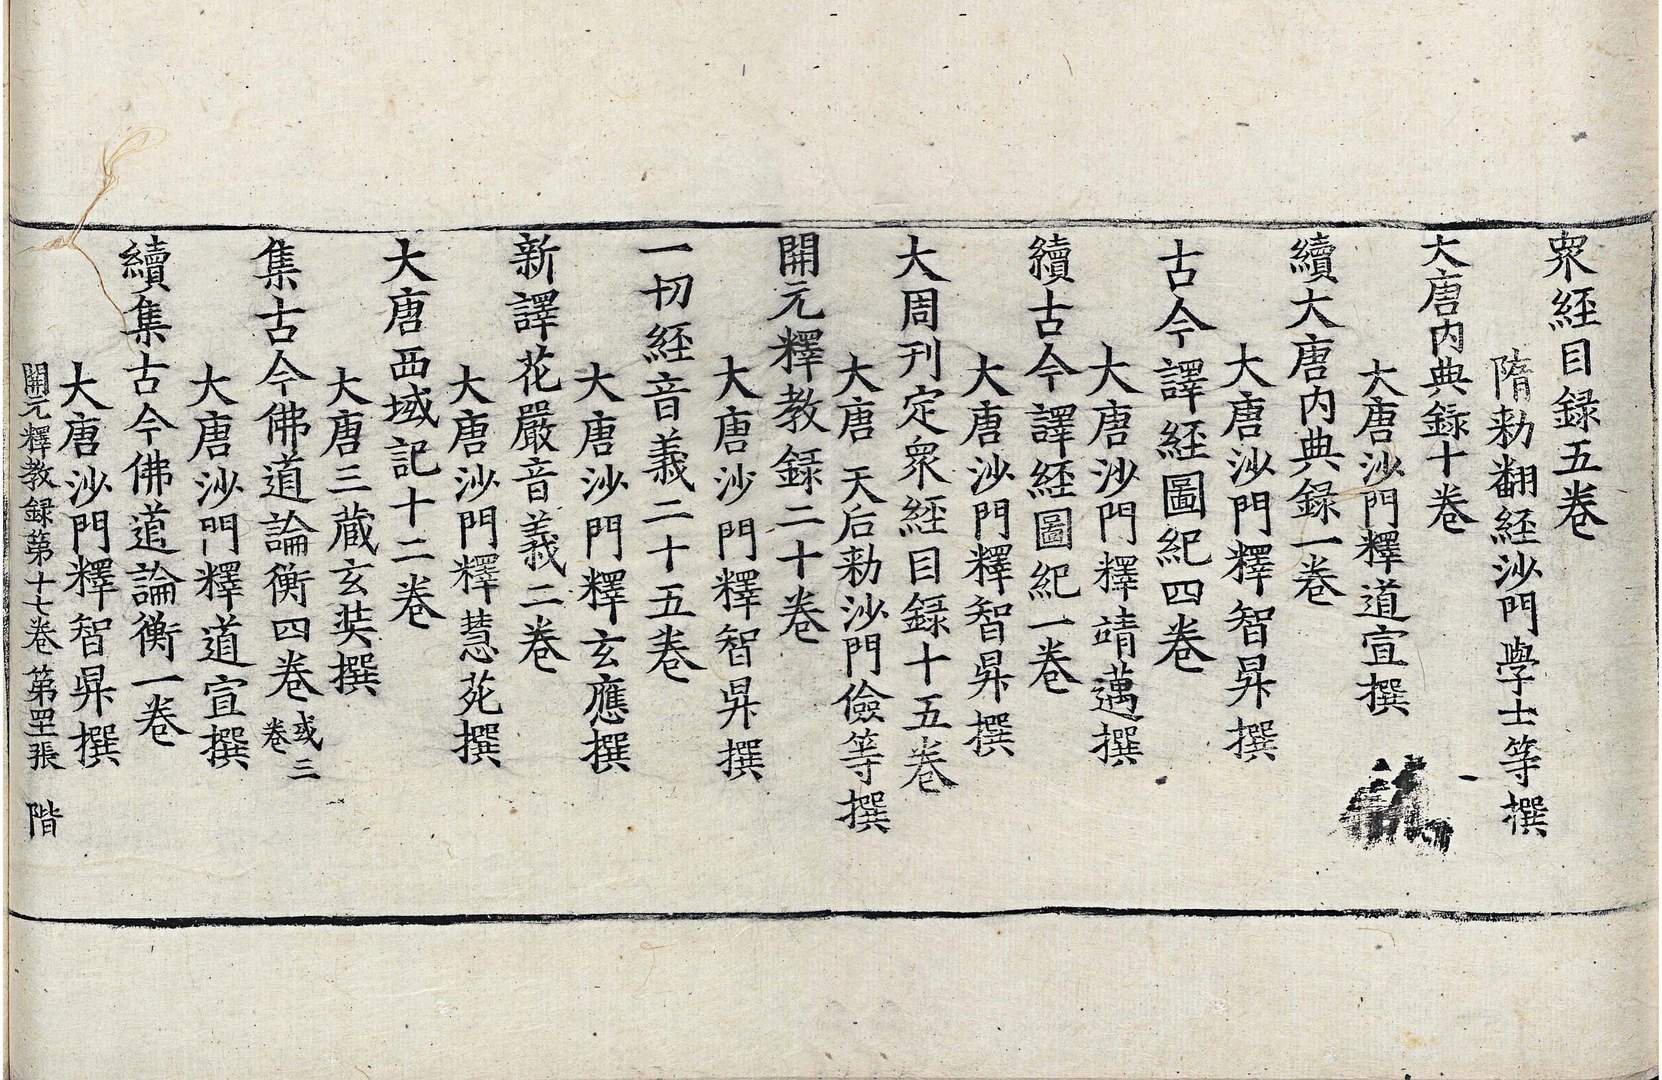 衆経目録五巻
隋勅翻経沙門學士等撰
大唐内典録十巻
大唐沙門釋道宣撰
續大唐内典録一巻
大唐沙門釋智昇撰
古今譯経圖紀四巻
大唐沙門釋靖邁撰
續古今譯経圖紀一巻
大唐沙門釋智昇撰
大周刊定衆経目録十五巻
大唐天后勅沙門儉等撰
開元釋教録二十巻
大唐沙門釋智昇撰
一切経音義二十五巻
大唐沙門釋玄應撰
新譯花嚴音義二巻
大唐沙門釋慧苑撰
大唐西域記十二巻
大唐三蔵玄奘撰
集古今佛道論衡四巻或三巻
大唐沙門釋道宣撰
續集古今佛道論衡一巻
大唐沙門釋智昇撰
開元釋教録第十七巻 第罡張 階